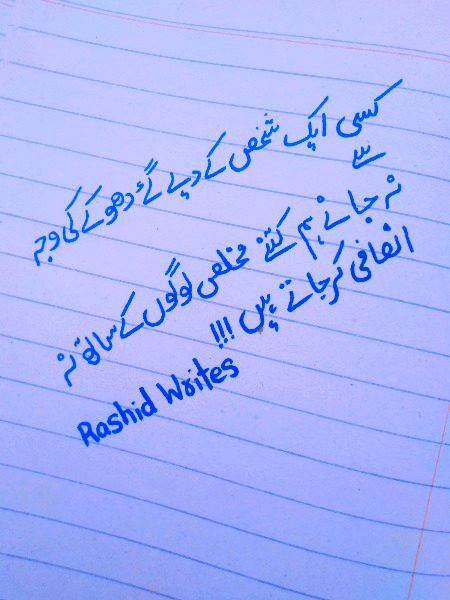 کسی ایک شخص کے دیے گئے دھوکے کی وجہ
سے
نہ جانے ہم کتنے مخلص لوگوں کے ساتھ نہ
انصافی کر جاتے ہیں !!!
Rashid Writes